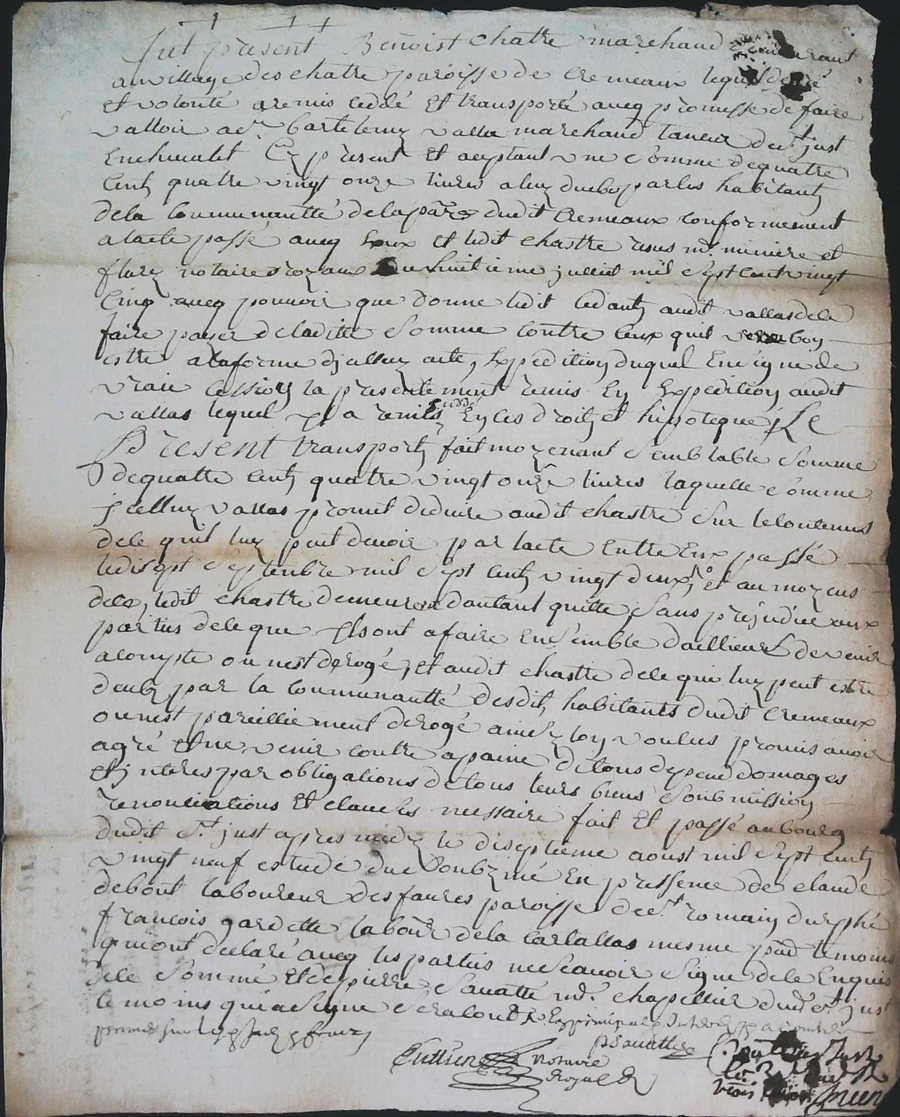 fut present Benoist chatre marchand
au village des chatre paroisse de cremeaux lequel de gré
et volonté a remis ceddé et transporté avecq promesse de faire
valloir a sr. bartelemy vallas marchand taneur de st just
en chevalet Cy present et aceptant une somme de quatre
cent quatre vingt onze livres a luy deub par les habitant
de la communautté de la parse dudit cremeaux conformement
a l'acte passé avecq eux et ledit chastre resus me. miniere et
flury notaires royaux le huitieme juillet mil sept cent vingt
cinq avecq pouvoir que donne ledit cedant audit vallas de la
faire payer de laditte somme contre ceux quil verra boy
estre a la forme dycelluy acte, expedition duquel en signe de
vraie cession la presentement remis en expedition audit
vallas lequel il a remis en ces droits et hipoteque, Le
Present transport fait moyenant semblable somme
de quatre cent quatre vingt onze livres laquelle somme
jcelluy vallas promit deduire audit chastre sur le contenus
de ce quil luy peut devoir par l'acte entre eux passé
le disept septembre mil sept cent vingt deux, et au moyens
de ce, ledit chastre demeurera dautant quitte sans prejudice aux
parties de ce que jls ont a faire ensemble dailleurs de venir
a compte ou nest derogé, et audit chastre de ce que luy peut estre
deub par la communautté desdit habitants dudit cremeaux
ou nest pareilliement derogé ainsy lon voulus promis avoir
agré et ne venir contre a paine de tous depend domages
et jnteres par obligations de tous leurs biens soubmission
renonciations et clauses nessaire fait et passé au bourg
dudit st. just apres midy le diseptieme aoust mil sept cent
vingt neuf estude du soubzne en pressence de claude
debout laboureur des faures paroisse de st. romain durphé
francois gardette labour de la cartallas mesme paroisse temoins
qui ont declaré avecq les parties ne scavoir signe de ce enquis
et de sommé et de pierre sauatte md. chapellier dud. st. just
temoins qui a signe
Sauatte
notaire
Royal